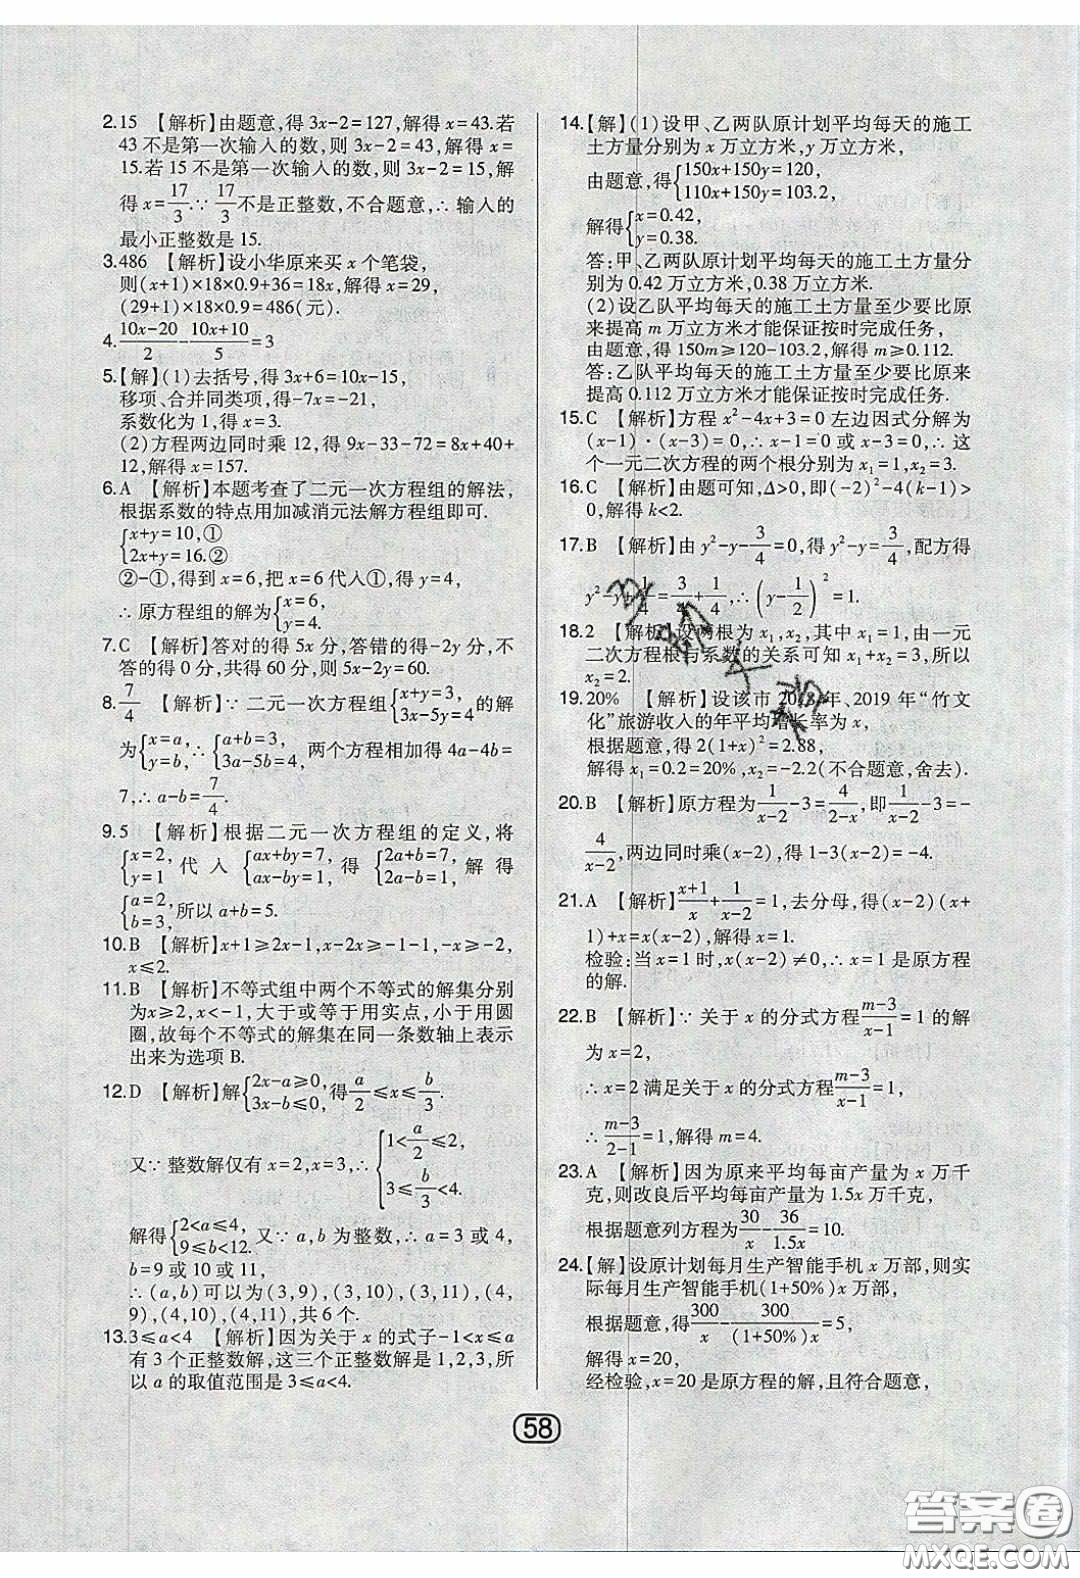 2.15 【解析】由题意,得 3x-2=127,解得 x=43.若
43 不是第一次输入的数,则 3x-2=43,解得 x=
15.若 15 不是第一次输入的数,则 3x-2=15,解
得 x=17/3.∵ 17/3 不是正整数,不合题意,∴ 输入的
最小正整数是 15.
3.486 【解析】设小华原来买 x 个笔袋,
则(x+1)×18×0.9+36=18x,解得 x=29,
(29+1)×18×0.9=486(元).
4. (10x-20)/2-(10x+10)/5=3
5.【解】(1)去括号,得 3x+6=10x-15,
移项、合并同类项,得-7x=-21,
系数化为 1,得 x=3.
(2)方程两边同时乘 12,得 9x-33-72=8x+40+
12,解得 x=157.
6.A 【解析】本题考查了二元一次方程组的解法,
根据系数的特点用加减消元法解方程组即可.
{x+y=10,①
2x+y=16.②
②-①,得到 x=6,把 x=6 代入①,得 y=4,
∴ 原方程组的解为{x=6, y=4.
7.C 【解析】答对的得 5x 分,答错的得-2y 分,不
答的得 0 分,共得 60 分,则 5x-2y=60.
8. 7/4 【解析】∵ 二元一次方程组{x+y=3, 3x-5y=4的解
为{x=a, y=b,∴{a+b=3, 3a-5b=4,两个方程相加得 4a-4b=
7,∴ a-b=7/4.
9.5 【解析】根据二元一次方程组的定义,将
{x=2, y=1 代入 {ax+by=7, ax-by=1, 得 {2a+b=7, 2a-b=1, 解得
{a=2, b=3,所以 a+b=5.
10.B 【解析】x+1≥2x-1,x-2x≥-1-1,-x≥-2,
x≤2.
11.B 【解析】不等式组中两个不等式的解集分别
为x≥2,x<-1,大于或等于用实点,小于用圆
圈,故每个不等式的解集在同一条数轴上表示
出来为选项 B.
12.D 【解析】解{2x-a≥0, 3x-b≤0,得a/2≤x≤b/3.
又∵ 整数解仅有 x=2,x=3,∴{1<a/2≤2, 3≤b/3<4.
解得{2<a≤4, 9≤b<12.又∵ a,b 为整数,∴ a=3 或 4,
b=9 或 10 或 11,
∴ (a,b)可以为(3,9),(3,10),(3,11),(4,
9),(4,10),(4,11),共 6 个.
13.3≤a<4 【解析】因为关于 x 的式子-1<x≤a
有 3 个正整数解,这三个正整数解是 1,2,3,所
以 a 的取值范围是 3≤a<4.
14.【解】(1)设甲、乙两队原计划平均每天的施工
土方量分别为 x 万立方米,y 万立方米,
由题意,得{150x+150y=120, 110x+150y=103.2,
解得{x=0.42, y=0.38.
答:甲、乙两队原计划平均每天的施工土方量分
别为 0.42 万立方米,0.38 万立方米.
(2)设乙队平均每天的施工土方量至少要比原
来提高 m 万立方米才能保证按时完成任务,
由题意,得 150m≥120-103.2,解得 m≥0.112.
答:乙队平均每天的施工土方量至少要比原来
提高 0.112 万立方米才能保证按时完成任务.
15.C 【解析】方程 x²-4x+3=0 左边因式分解为
(x-1)·(x-3)=0,∴ x-1=0 或 x-3=0,∴ 这
个一元二次方程的两个根分别为 x₁=1,x₂=3.
16.C 【解析】由题可知,Δ>0,即(-2)²-4(k-1)>
0,解得 k<2.
17.B 【解析】由 y²-y-3/4=0,得 y²-y=3/4,配方得
y²-y+1/4=3/4+1/4,∴(y-1/2)²=1.
18.2 【解析】设两根为 x₁,x₂,其中 x₁=1,由一元
二次方程根与系数的关系可知 x₁+x₂=3,所以
x₂=2.
19.20% 【解析】设该市 2018 年、2019 年“竹文
化”旅游收入的年平均增长率为 x,
根据题意,得 2(1+x)²=2.88,
解得 x₁=0.2=20%,x₂=-2.2(不合题意,舍去).
20.B 【解析】原方程为1/(x-2)-3=4/(2-x),即1/(x-2)-3=-
4/(x-2),两边同时乘(x-2),得 1-3(x-2)=-4.
21.A 【解析】(x+1)/x+1/(x-2)=1,去分母,得(x-2)(x+
1)+x=x(x-2),解得 x=1.
检验:当 x=1 时,x(x-2)≠0,∴ x=1 是原方程
的解.
22.B 【解析】∵ 关于 x 的分式方程(m-3)/(x-1)=1 的解
为 x=2,
∴ x=2 满足关于 x 的分式方程(m-3)/(x-1)=1,
∴ (m-3)/(2-1)=1,解得 m=4.
23.A 【解析】因为原来平均每亩产量为 x 万千
克,则改良后平均每亩产量为 1.5x 万千克,
根据题意列方程为30/x-36/1.5x=10.
24.【解】设原计划每月生产智能手机 x 万部,则实
际每月生产智能手机(1+50%)x 万部,
根据题意,得300/x-300/(1+50%)x=5,
解得 x=20,
经检验,x=20 是原方程的解,且符合题意,
58
答案圈
MXQE.COM